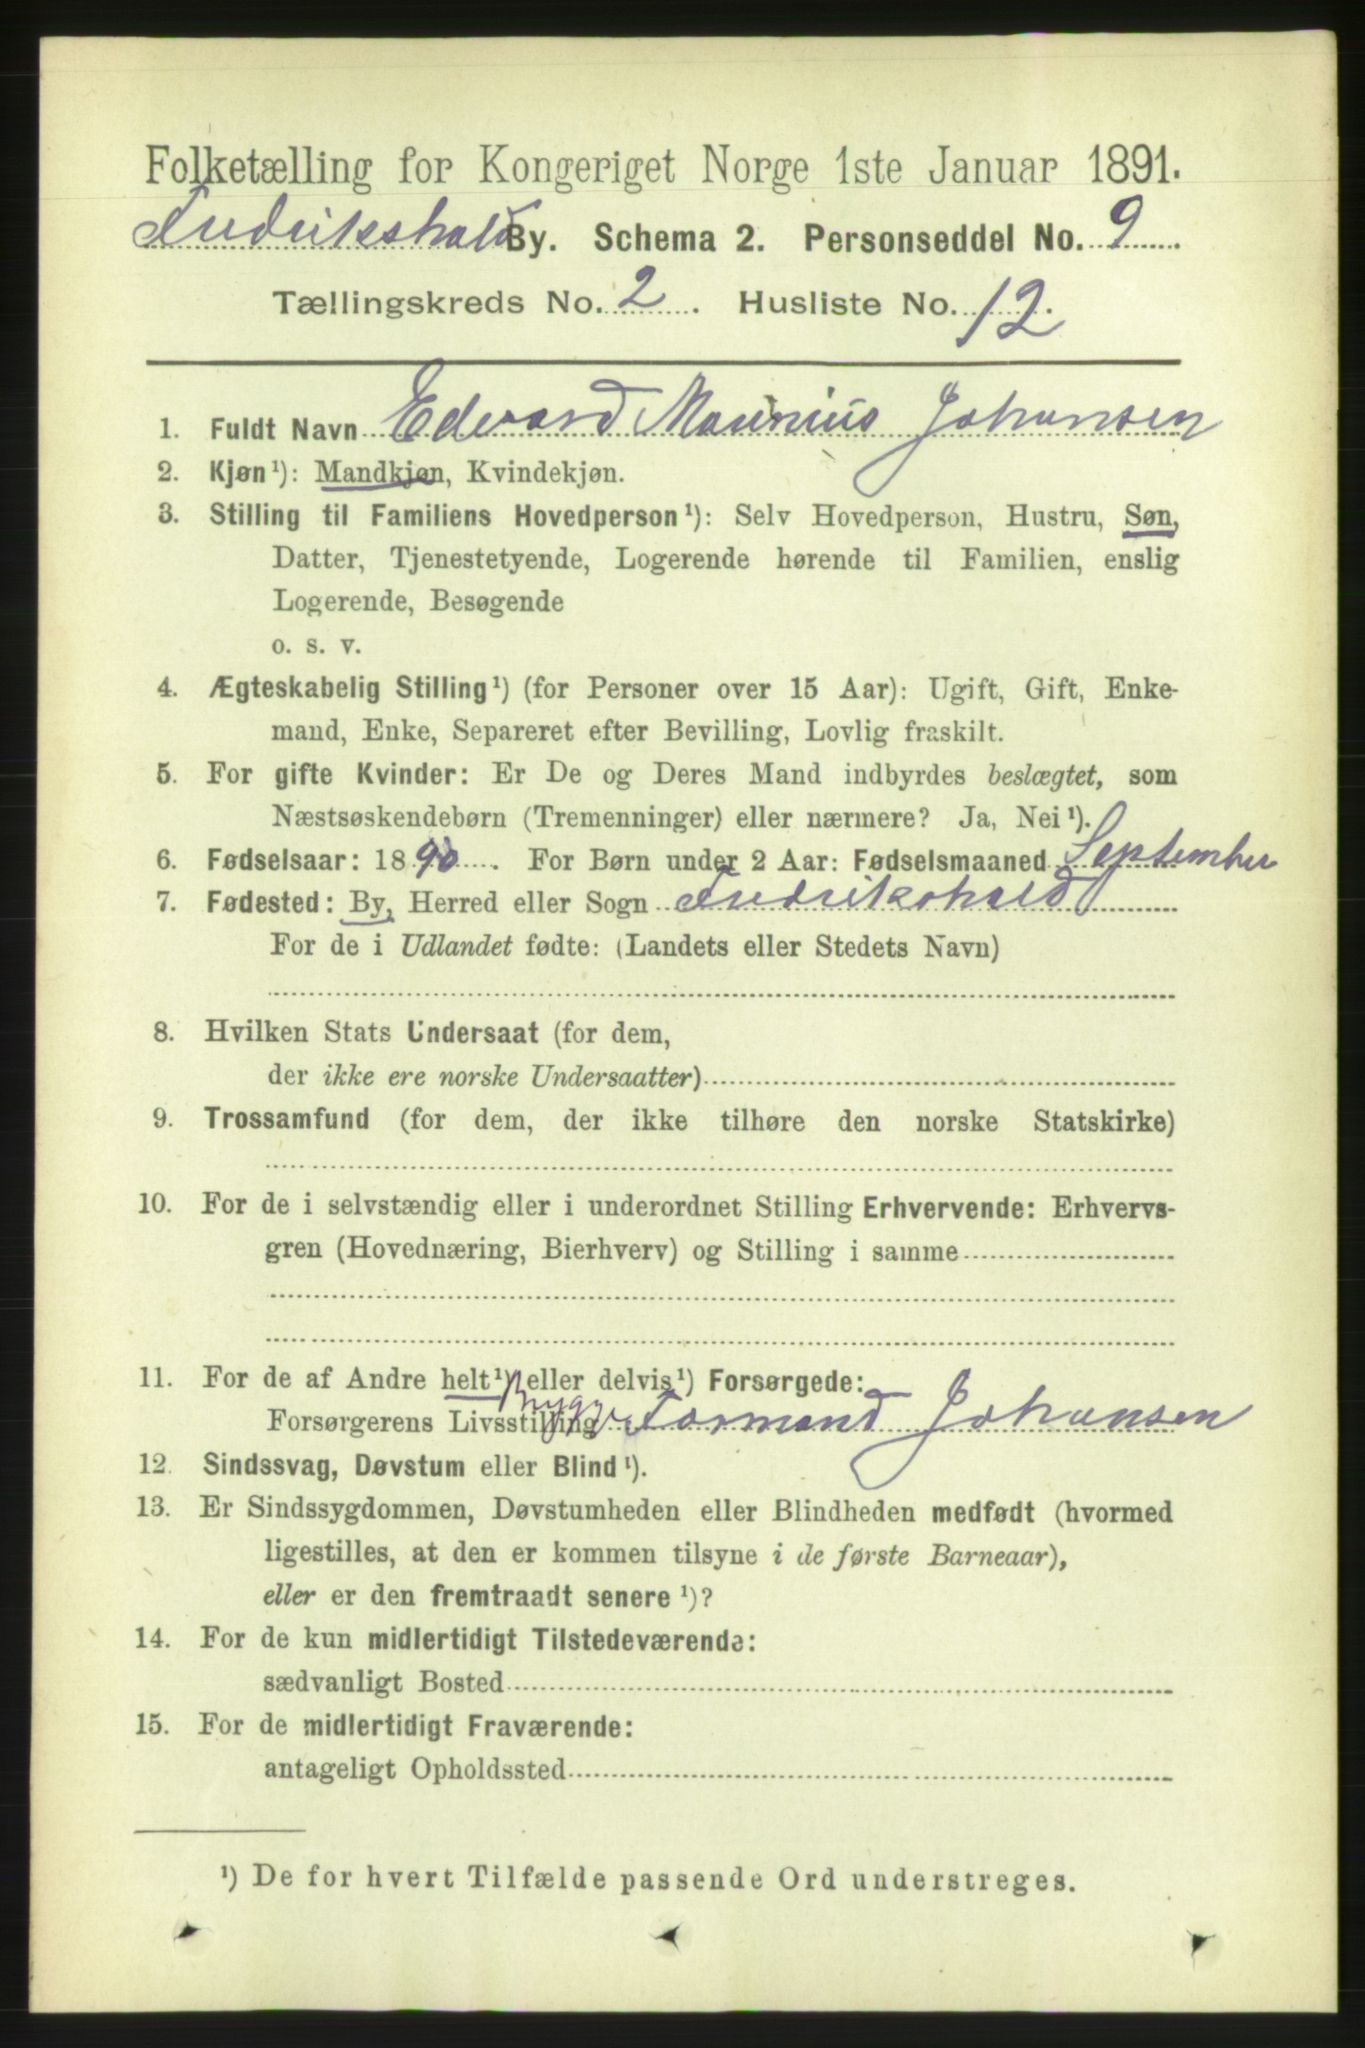 Folketælling for Kongeriget Norge 1ste Januar 1891.
Fredrikshald By. Schema 2. Personseddel No. 9
Tællingskreds No. 2. Husliste No. 12.
1. Fuldt Navn Edvard Johansen
2. Kjøn¹): Mandkjøn, Kvindekjøn.
3. Stilling til Familiens Hovedperson¹): Selv Hovedperson, Hustru, Søn,
Datter, Tjenestetyende, Logerende hørende til Familien, enslig
Logerende, Besøgende
o. s. v.
4. Ægteskabelig Stilling¹) (for Personer over 15 Aar): Ugift, Gift, Enke-
mand, Enke, Separeret efter Bevilling, Lovlig fraskilt.
5. For gifte Kvinder: Er De og Deres Mand indbyrdes beslægtet, som
Næstsøskendebørn (Tremenninger) eller nærmere? Ja, Nei¹).
6. Fødselsaar: 1890. For Børn under 2 Aar: Fødselsmaaned September
7. Fødested: By, Herred eller Sogn Fredrikshald
For de i Udlandet fødte: (Landets eller Stedets Navn)
8. Hvilken Stats Undersaat (for dem,
der ikke ere norske Undersaatter)
9. Trossamfund (for dem, der ikke tilhøre den norske Statskirke)
10. For de i selvstændig eller i underordnet Stilling Erhvervende: Erhvervs-
gren (Hovednæring, Bierhverv) og Stilling i samme
11. For de af Andre helt¹) eller delvis¹) Forsørgede:
Forsørgerens Livsstilling Formand Johansen
12. Sindssvag, Døvstum eller Blind¹).
13. Er Sindssygdommen, Døvstumheden eller Blindheden medfødt (hvormed
ligestilles, at den er kommen tilsyne i de første Barneaar),
eller er den fremtraadt senere¹)?
14. For de kun midlertidigt Tilstedeværende:
sædvanligt Bosted
15. For de midlertidigt Fraværende:
antageligt Opholdssted
¹) De for hvert Tilfælde passende Ord understreges.